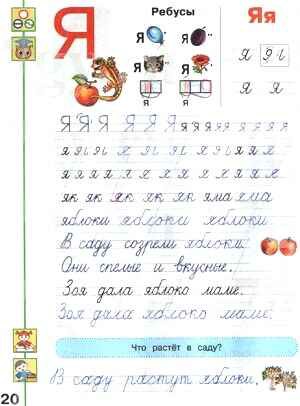 Я
Ребусы
Яя
Я
Я
Я
Я
я
я я
я я
Я Я Я Я Я Я я я я я я я я я я
я я я я я я я я я я я я
я я я я я я я я я я я я
як як як як як яма яма
яблоки яблоки яблоки
В саду созрели яблоки.
Они спелые и вкусные.
Зоя дала яблоко маме.
Зоя дала яблоко маме.
Что растёт в саду?
В саду растут яблоки.
20